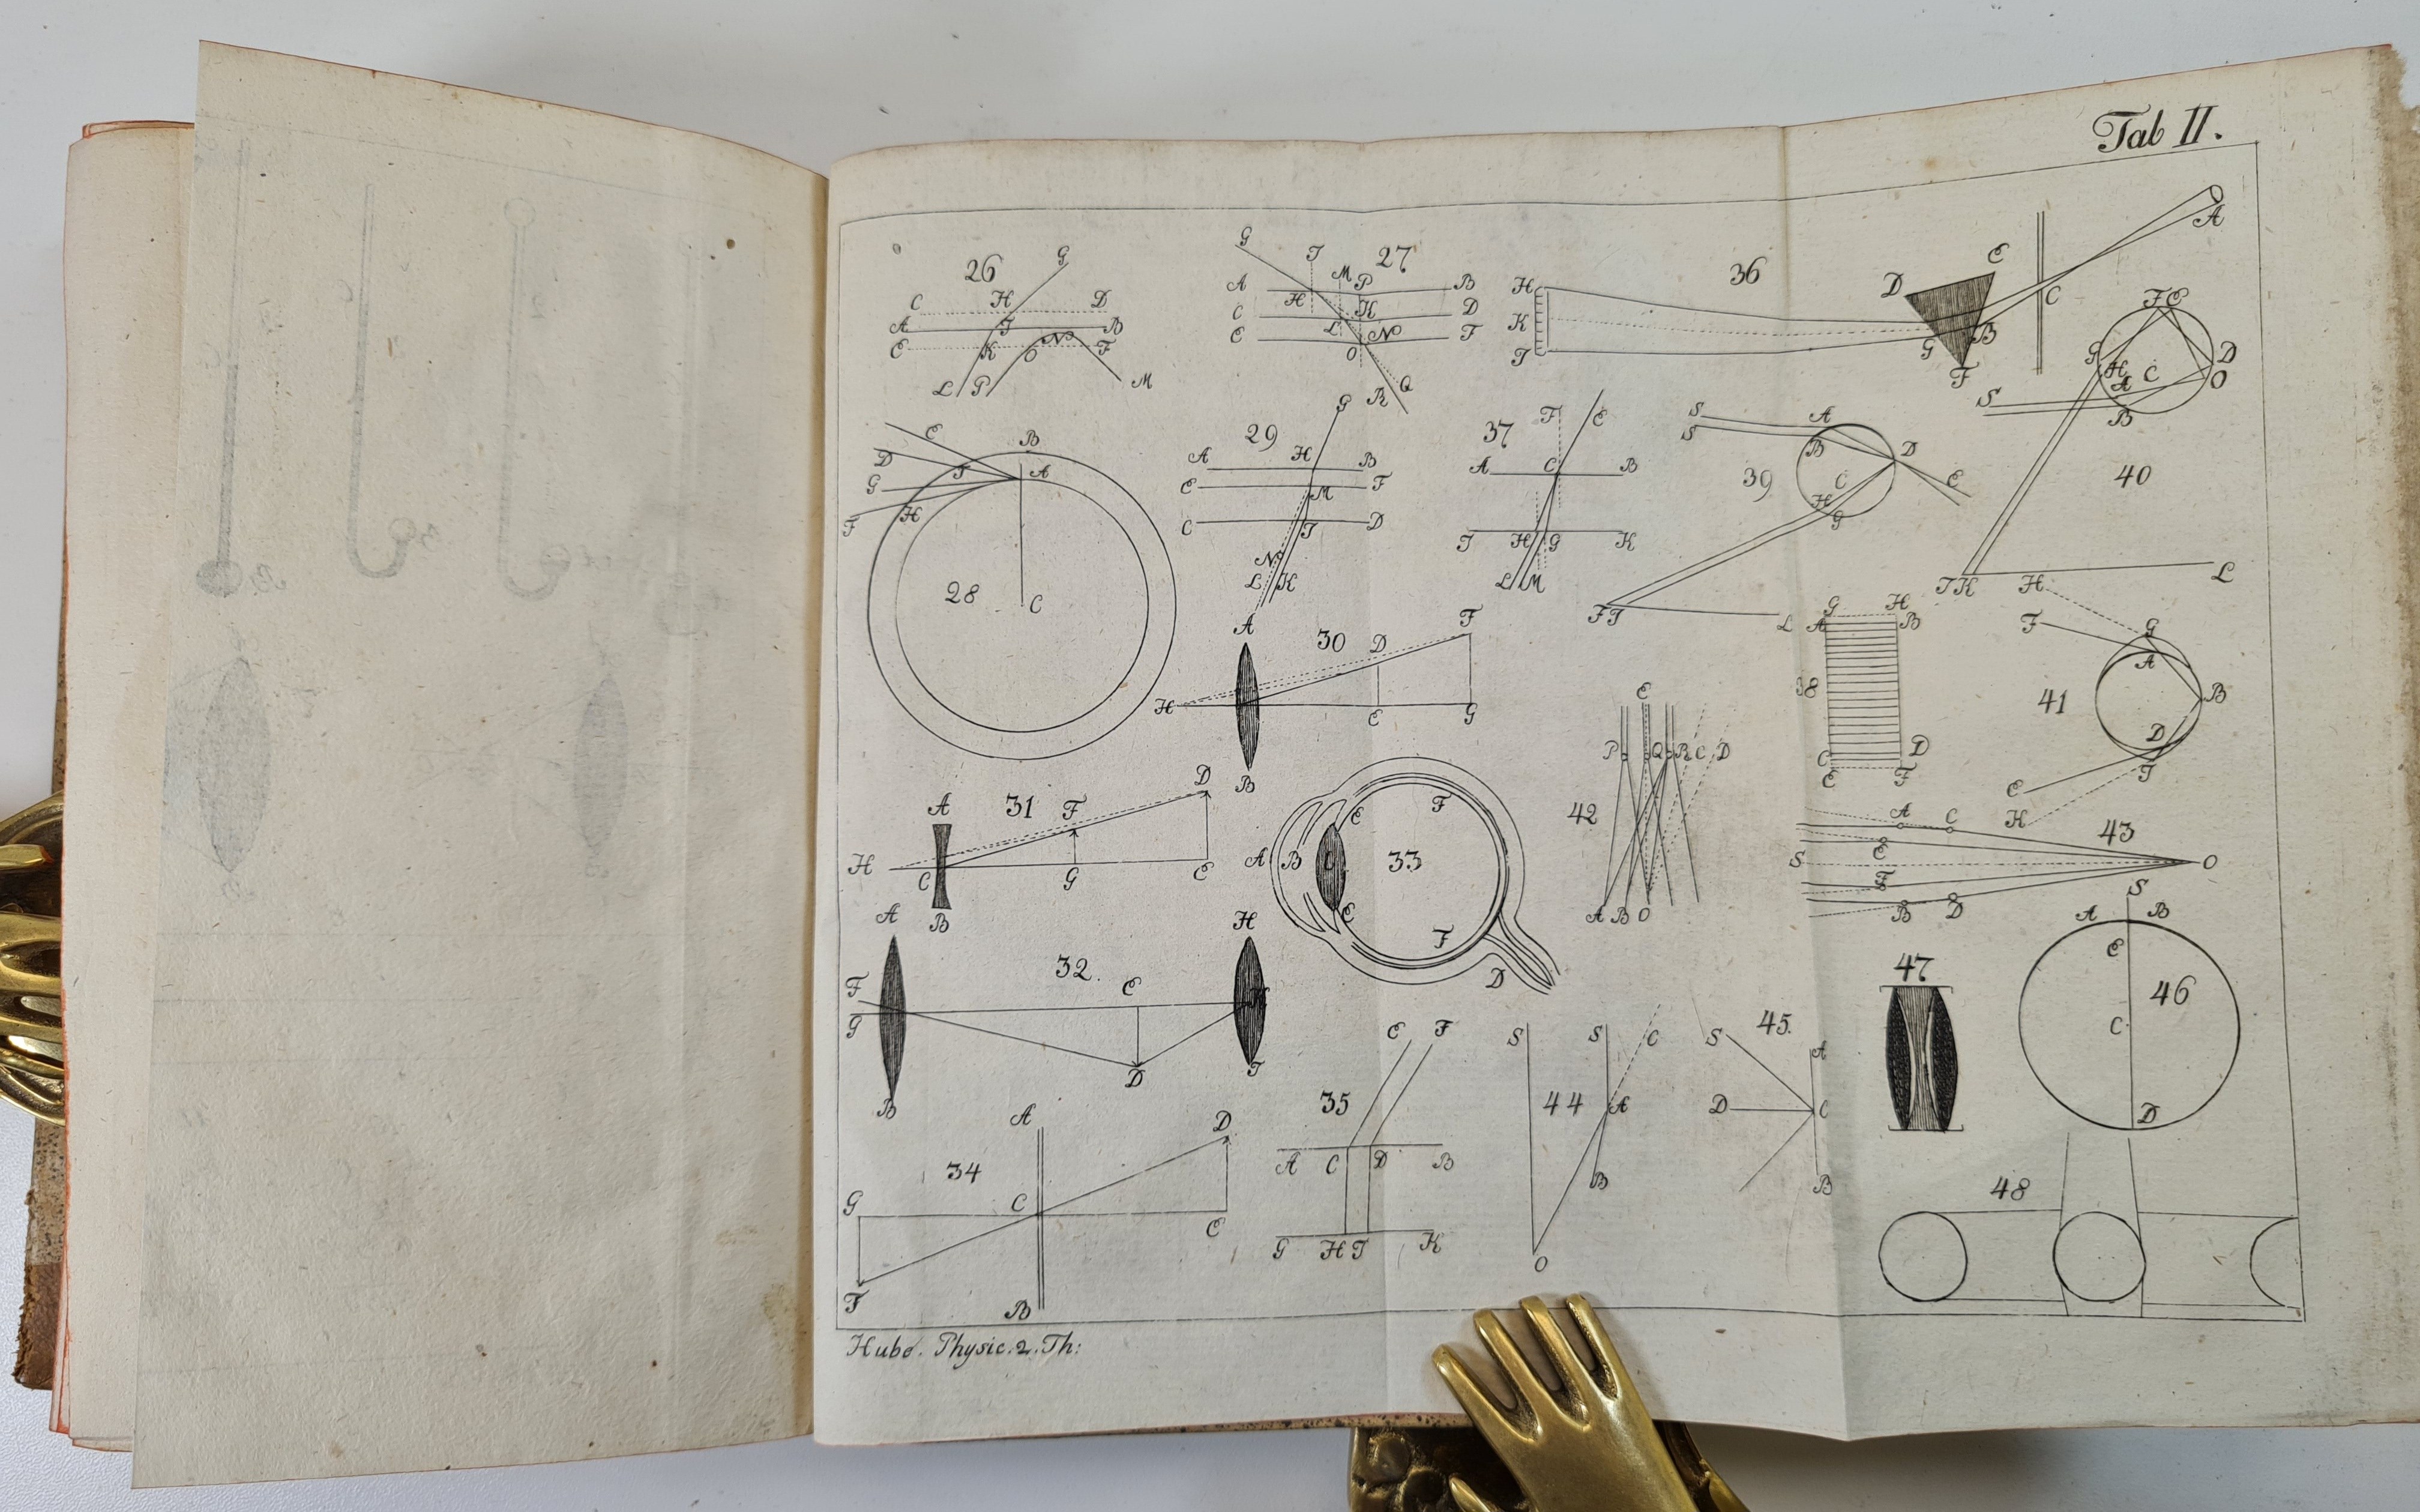 Tab II.
26
G
C H D
A I B
E K O N F
L P M
G I M P 27
A H B
C K D
E L N F
O
R Q
36
H
K
I
D E
G B
F
C
A
28
E
D
G
F
I
H
B
A
C
29
G
A H B
E M F
C I D
N
L K
37
F E
A C B
I H G K
L M
39
S A
S B
D
C
E
H
G
F I L
40
F E
G D
H C O
S A
B
I K L
30
A
D F
H E G
B
38
G H
A B
C D
E F
41
H
F G
A
B
D
I
E
H
31
A F D
H C G E
B
33
E F
A B C
E F
D
42
E
P Q R C D
A B O
43
A C
E
S O
F
B D
32.
A H
F E K
G
D I
B
47
S
A B
E 46
C
D
34
A D
G C E
F B
35
E F
A C D B
G H I K
44
S S C
A
B
O
45.
S A
D C
B
48
Hube. Physic. 2. Th: